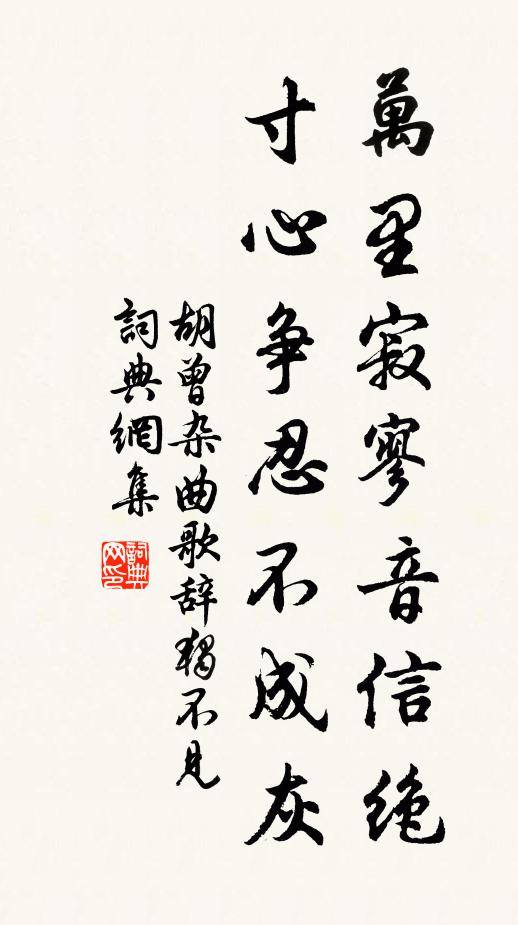 萬里寂寥音信绝
寸心争忍不成灰
胡曾杂曲歌辞独不见
詞典網集
詞典网印